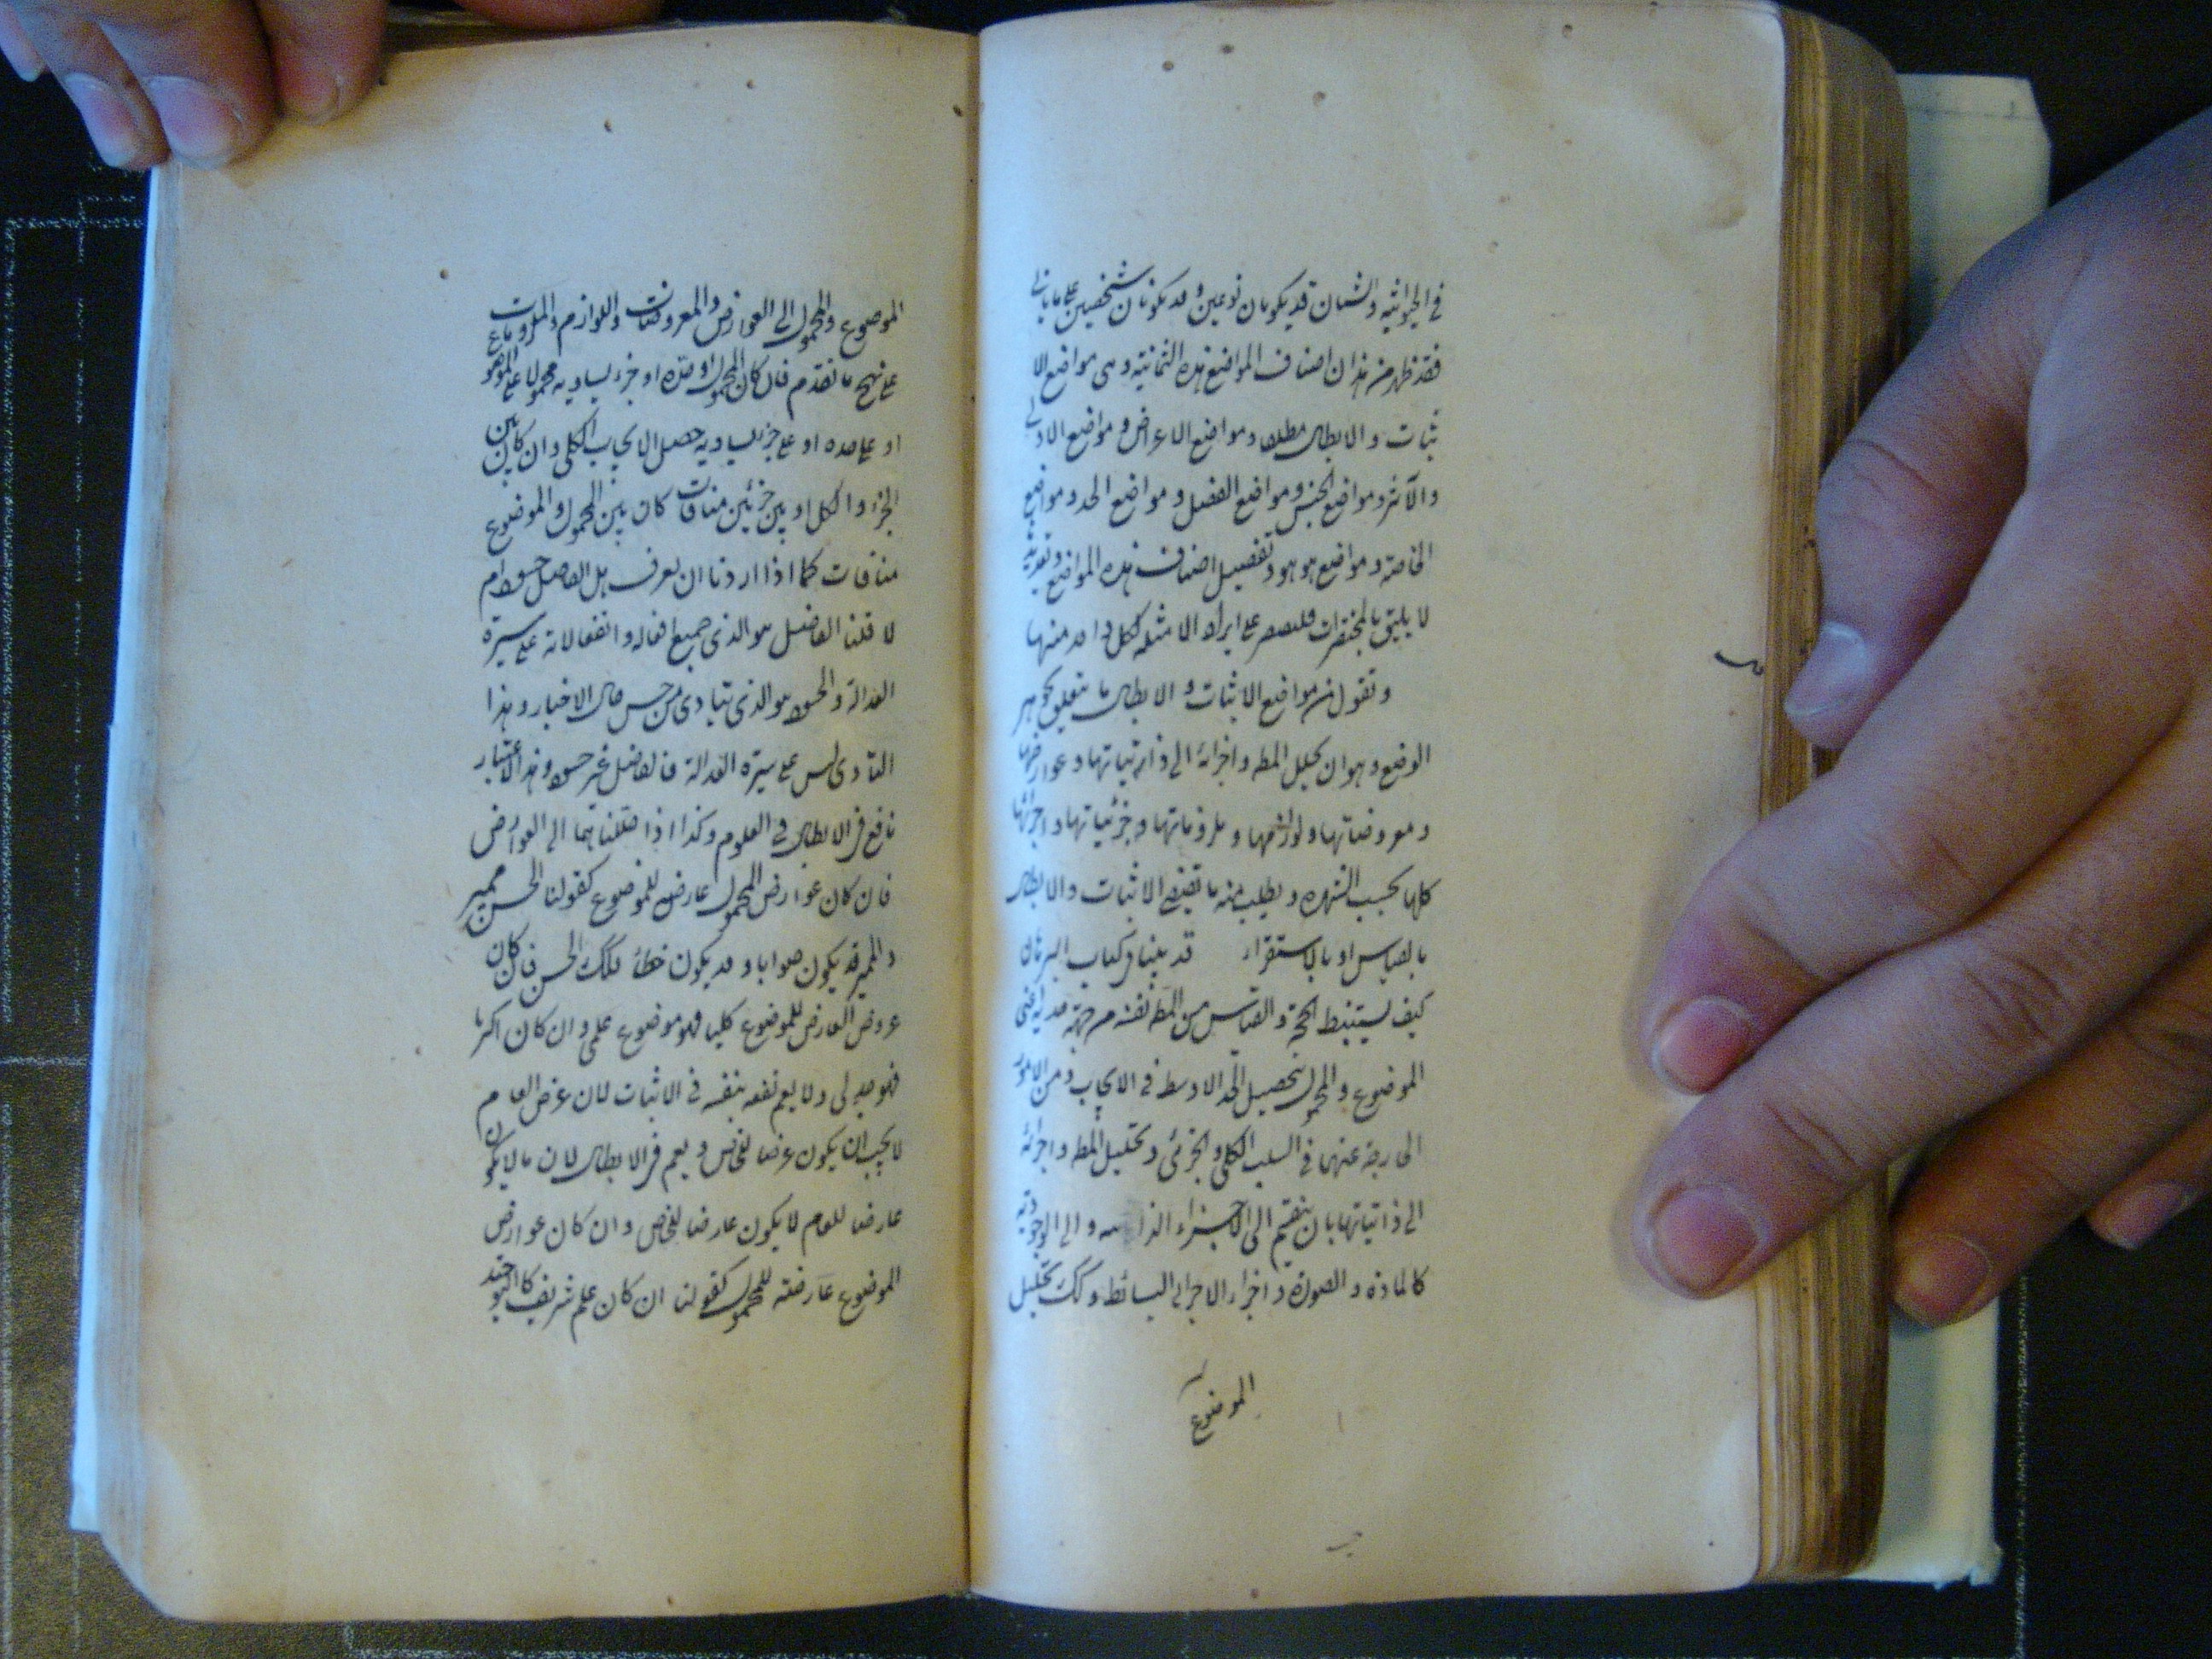 في الحيوانيه والشيئان قد يكونان نوعين وقد يكونان شخصين على ما ياتي
فقد ظهر من هذا ان اصناف المواضع هذه الثمانية وهى مواضع الا
ثبات والابطال مطلقا ومواضع الاعراض ومواضع الاولى
والآثر ومواضع الجنس ومواضع الفصل ومواضع الحد ومواضع
الخاصة ومواضع هو هو وتفصيل اصناف هذه المواضع وتعديد
لا يليق بالمختصرات فلنقتصر على ايراد الامثلة لكل واحد منها
ونقول من مواضع الاثبات و الابطال ما يتعلق بجوهر
الوضع وهو ان يحلل المط واجزائه الى ذاتياتها وعوارضها
ومعروضاتها ولوازمها وملزوماتها وجزئياتها واجزائها
كلها بحسب الشهره ويطلب منه ما يقتضى الاثبات والابطال
بالقياس او بالاستقراء قد بينا فى كتاب البرهان
كيف يستنبط الحجة و القياس من المط نفسه من جهة
الموضوع والمحمول بتحصيل الحد الاوسط في الايجاب ومن الامور
الخارجة عنهما في السلب الكلى والجزئى وتحليل المط واجزائه
الى ذاتياتها بان ينقسم الى الاجزاء و الى الوجودية
كالمادة و الصورة و اجزاء الاجزاء الى البسائط وكك تحليل
الموضوع
الموضوع والمحمول الى العوارض والمعروضات واللوازم والملزومات
على نهج ما تقدم فان كان المحمول او حده او جزء يساويه محمولا على الموضوع
او على حده او على جزء يساويه حصل الايجاب الكلى وان كان بين
الجزء والكل او بين جزئين منافات كان بين المحمول والموضوع
منافات كما اذا اردنا ان نعرف هل الفاضل حسود ام
لا قلنا الفاضل هو الذى جميع افعاله وانفعالاته على سيرة
العدالة والحسود هو الذى يتاذى من حسن حال الاخيار وهذا
التاذى ليس على سيرة العدالة فالفاضل غير حسود وهذا الاعتبار
نافع فى الابطال في العلوم وكذا اذا حللناهما الى العوارض
فان كان عوارض المحمول عارض للموضوع كقولنا الحسن مميز
والمميز قد يكون صوابا وقد يكون خطأ فكك الحسن فان كان
عروض العارض للموضوع كليا فهو موضوع علمى وان كان اكثريا
فهو جدلى ولا يعم نفعه بنفسه في الاثبات لان عرض العام
لا يجب ان يكون عرضا للخاص ويعم فى الابطال لان ما لا يكون
عارضا للعام لا يكون عارضا للخاص وان كان عوارض
الموضوع عارضة للمحمول كقولنا ان كان علم شريف كان